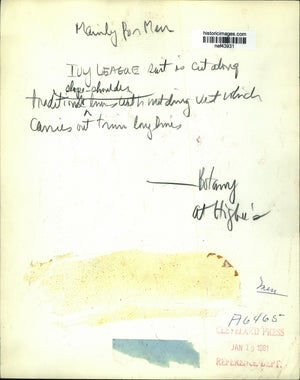 historicimages.com
nef43931
Mainly for Men
IVY LEAGUE suit is cut along
slope-shoulder
traditional lines with matching vest which
carries out trim long lines
— Botany
at Higbee's
Men
A6465
CLEVELAND PRESS
JAN 1961
REFERENCE DEPT.